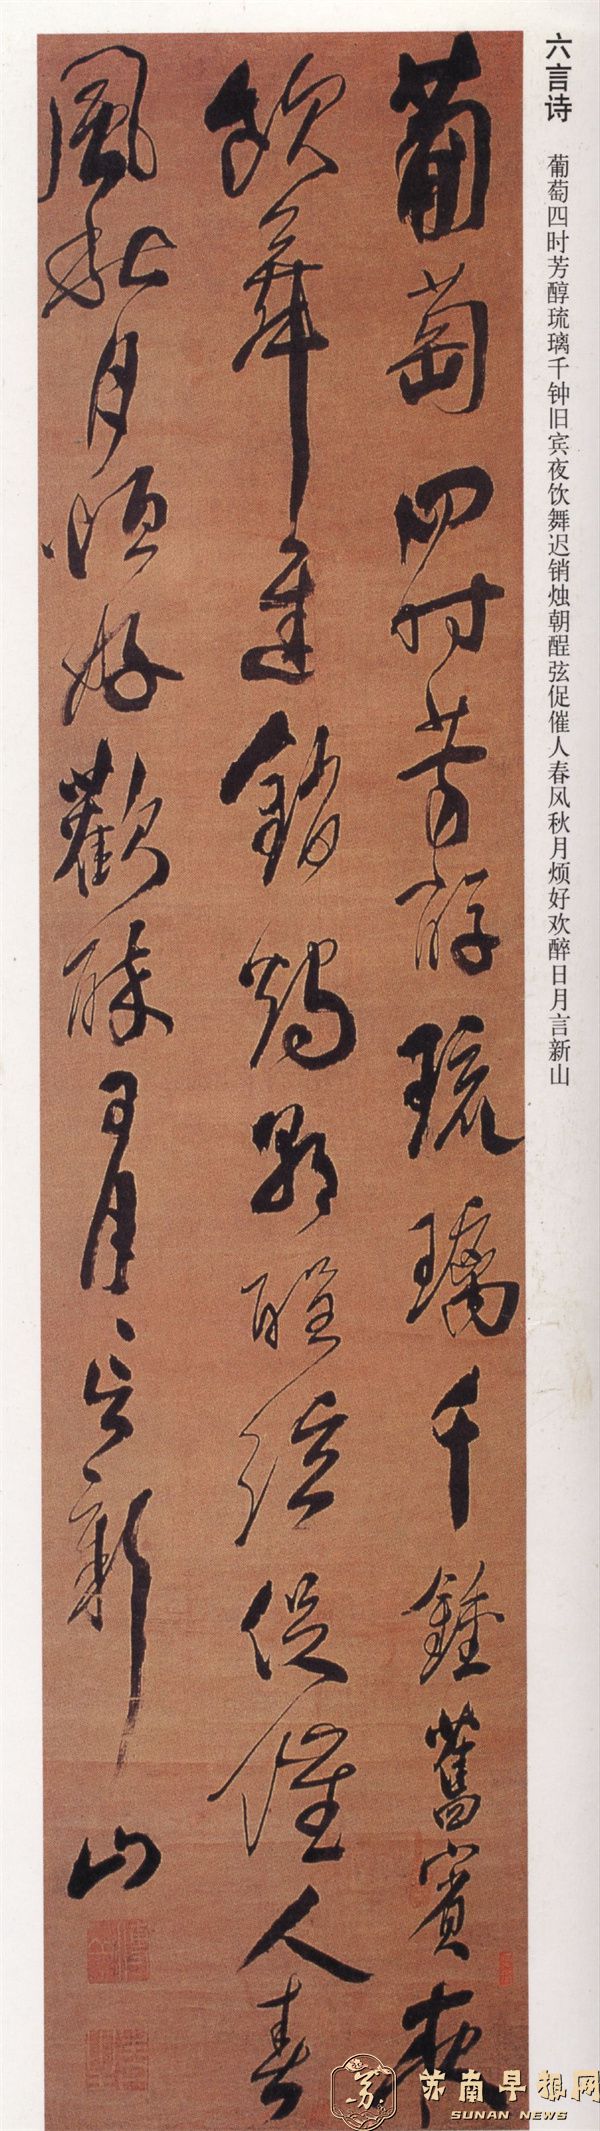 六言诗
葡萄四时芳醇琉璃千钟旧宾夜饮舞迟销烛朝醒弦促催人春风秋月烦好欢醉日月言新山
葡萄四時芳醇琉璃千鍾舊賓夜
飲舞遲銷燭朝醒絃促催人春
風秋月恒好歡醉日月言新山
苏南早报网
SUNAN NEWS